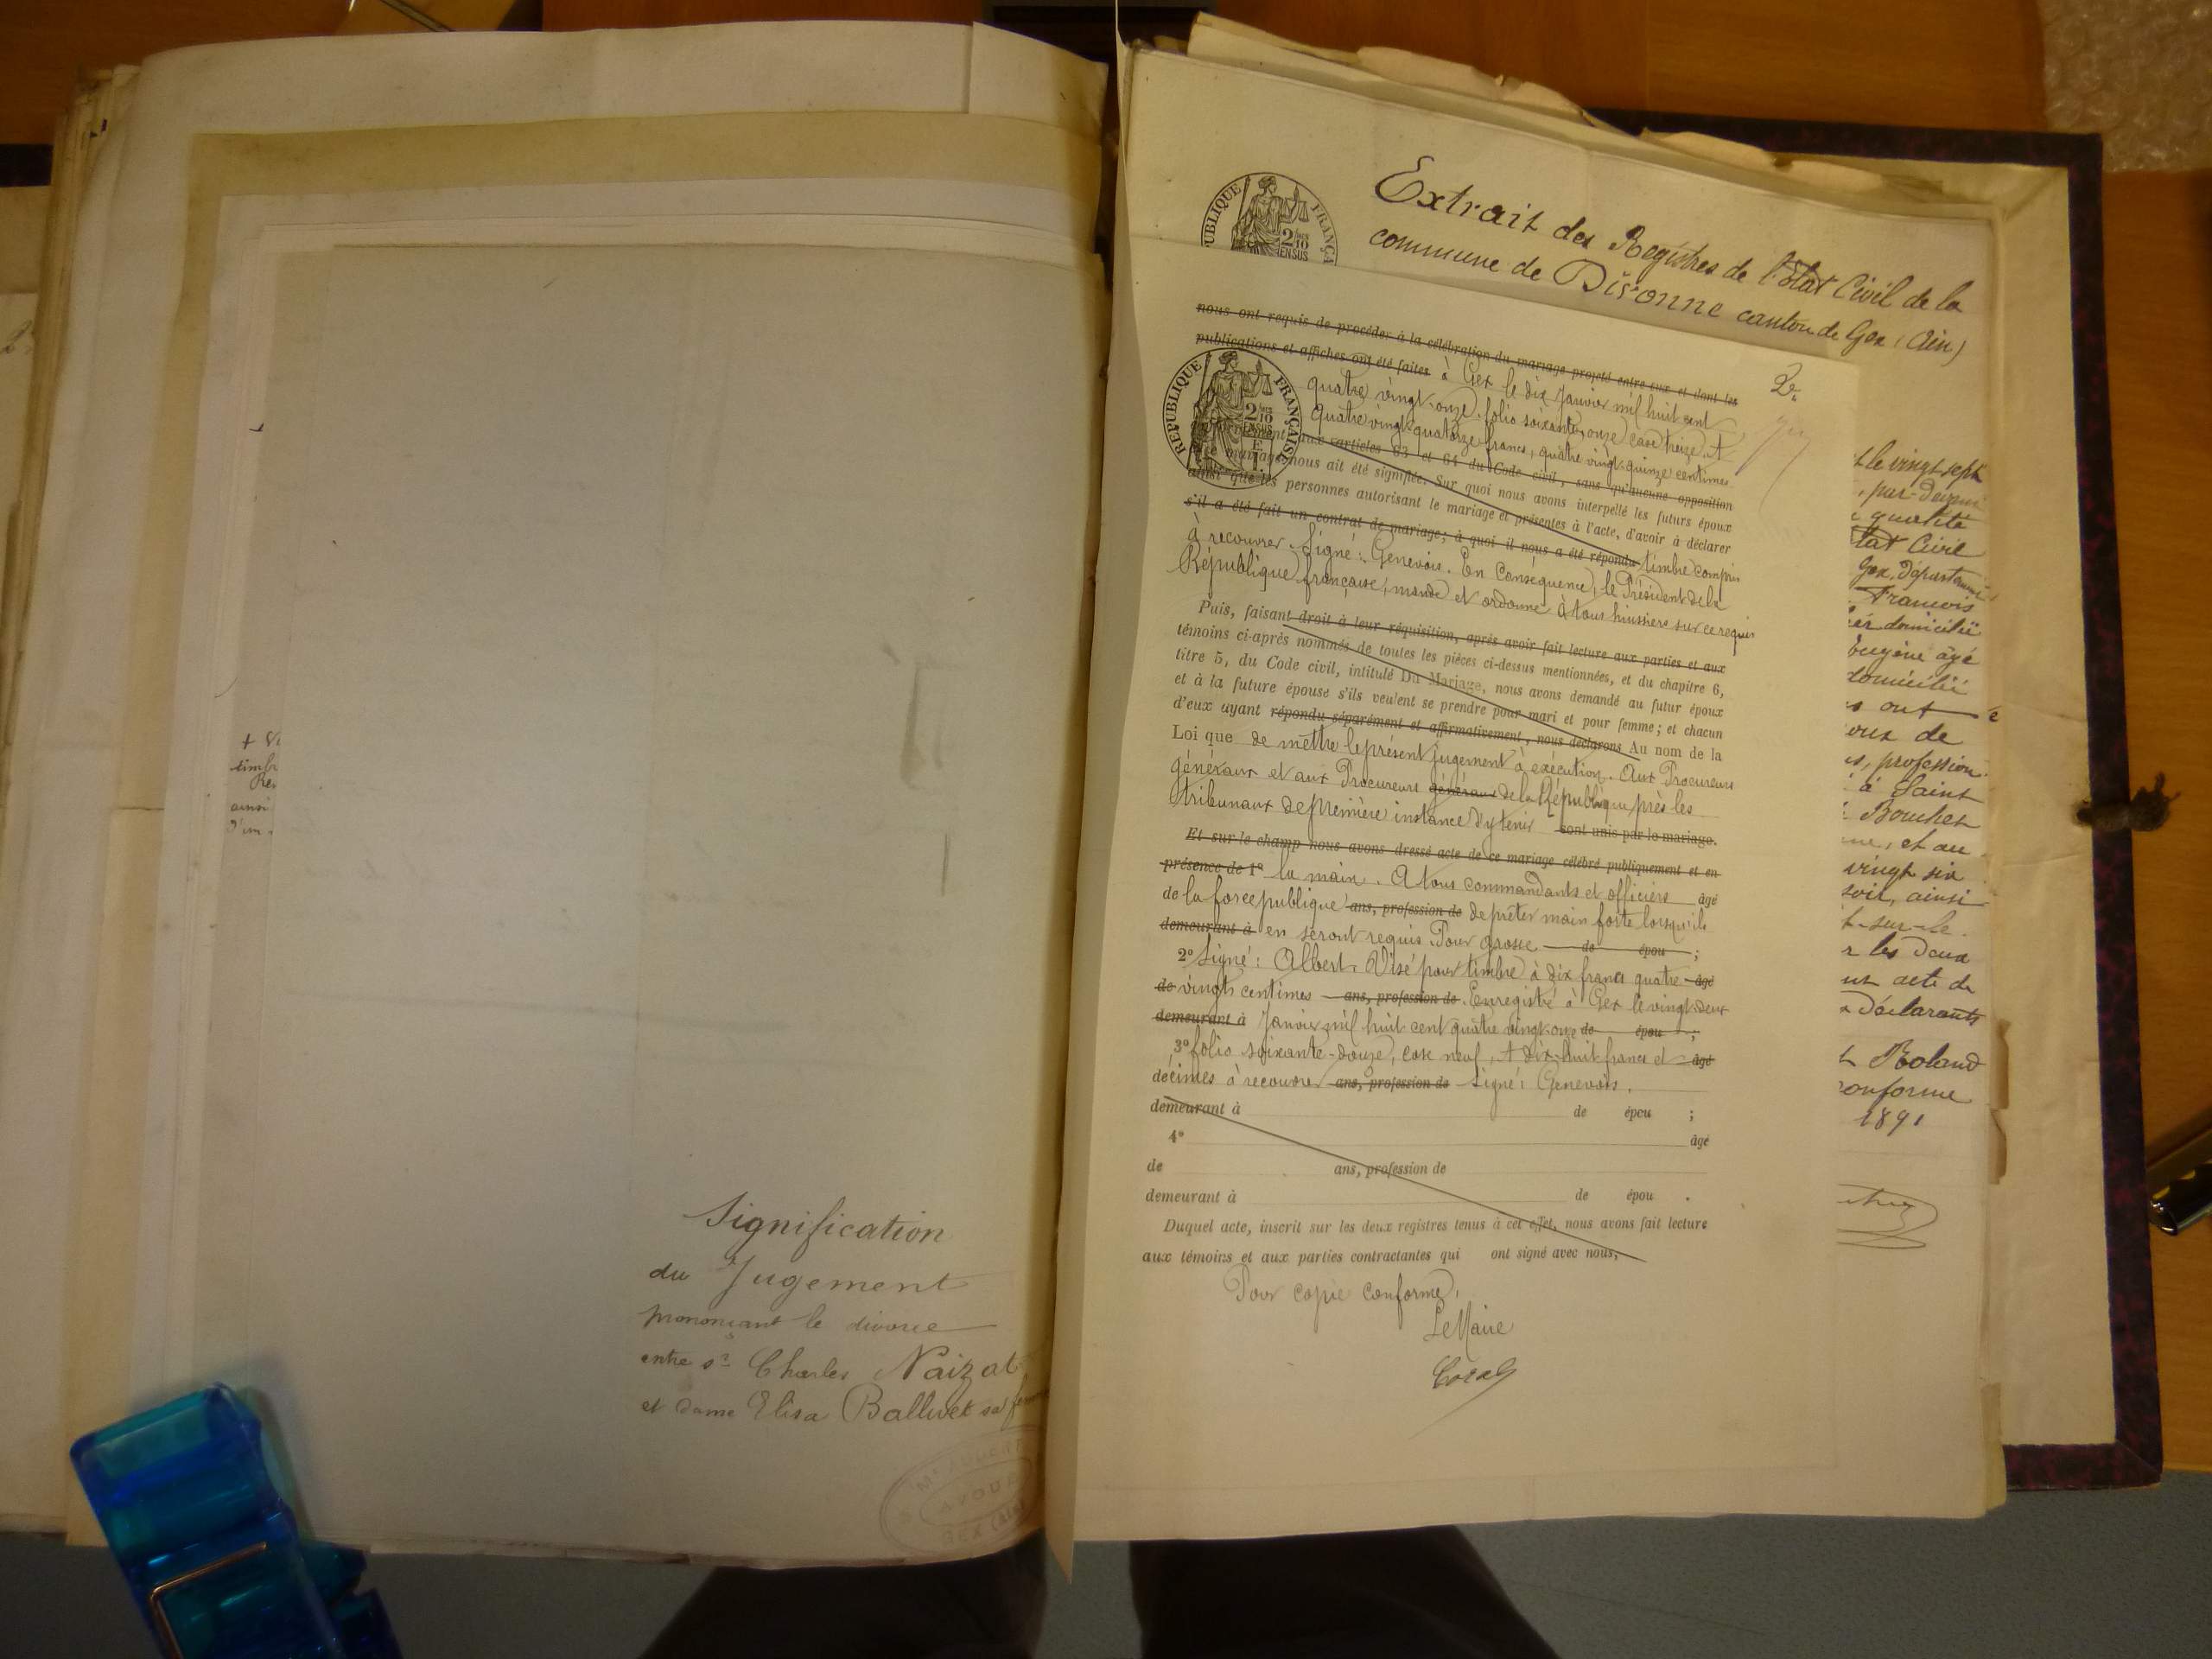 + V
timb
Re
ainsi
d'un
Signification
du Jugement
prononçant le divorce
entre sr Charles Naizat
et dame Elisa Ballivet sa
AVOUÉ
GEX (AIN)
Extrait des Registres de l'Etat Civil de la
commune de Divonne canton de Gex (Ain)
UBLIQUE FRANÇA
2 10
ENSUS
nous ont requis de procéder à la célébration du mariage projeté entre eux et dont les
publications et affiches ont été faites à Gex le dix Janvier mil huit cent
2e
REPUBLIQUE FRANÇAISE
2 10
ENSUS
quatre vingt-onze, folio soixante-onze case treize. A
quatre vingt-quatorze francs, quatre vingt-quinze centimes
aux articles 63 et 64 du Code civil, sans qu'aucune opposition
mariage nous ait été signifiée. Sur quoi nous avons interpellé les futurs époux
ainsi que les personnes autorisant le mariage et présentes à l'acte, d'avoir à déclarer
s'il a été fait un contrat de mariage; à quoi il nous a été répondu timbre compris
à recouvrer. Signé: Genevois. En conséquence, le Président de la
République française, mande et ordonne à tous huissiers sur ce requis
Puis, faisant droit à leur réquisition, après avoir fait lecture aux parties et aux
témoins ci-après nommés de toutes les pièces ci-dessus mentionnées, et du chapitre 6,
titre 5, du Code civil, intitulé Du Mariage, nous avons demandé au futur époux
et à la future épouse s'ils veulent se prendre pour mari et pour femme; et chacun
d'eux ayant répondu séparément et affirmativement, nous déclarons Au nom de la
Loi que de mettre le présent jugement à exécution. Aux Procureurs
généraux et aux Procureurs généraux de la République près les
tribunaux de première instance d'y tenir sont unis par le mariage.
Et sur le champ nous avons dressé acte de ce mariage célébré publiquement et en
présence de 1° la main. A tous commandants et officiers âgé
de la force publique ans, profession de de prêter main forte lorsqu'ils
demeurant à en seront requis. Pour grosse de épou ;
2° Signé: Albert. Visé pour timbre à dix francs quatre âgé
de vingts centimes ans, profession de Enregistré à Gex le vingt-deux
demeurant à Janvier mil huit cent quatre vingt-onze de épou ;
3° folio soixante-douze, case neuf, A dix-huit francs et âgé
décimes à recouvrer ans, profession de Signé: Genevois.
demeurant à de épou ;
4° âgé
de ans, profession de
demeurant à de épou .
Duquel acte, inscrit sur les deux registres tenus à cet effet, nous avons fait lecture
aux témoins et aux parties contractantes qui ont signé avec nous,
Pour copie conforme,
Le Maire
t le vingt sept
, par-devant
qualité
Etat Civil
Gex, département
Francois
ier domicilié
Eugène âgé
domicilié
s ont
ous de
s, profession
à Saint
Bouchet
ne, et au
vingt six
soir, ainsi
t-sur-le
r les deux
nt acte de
déclarants
t Roland
conforme
1891